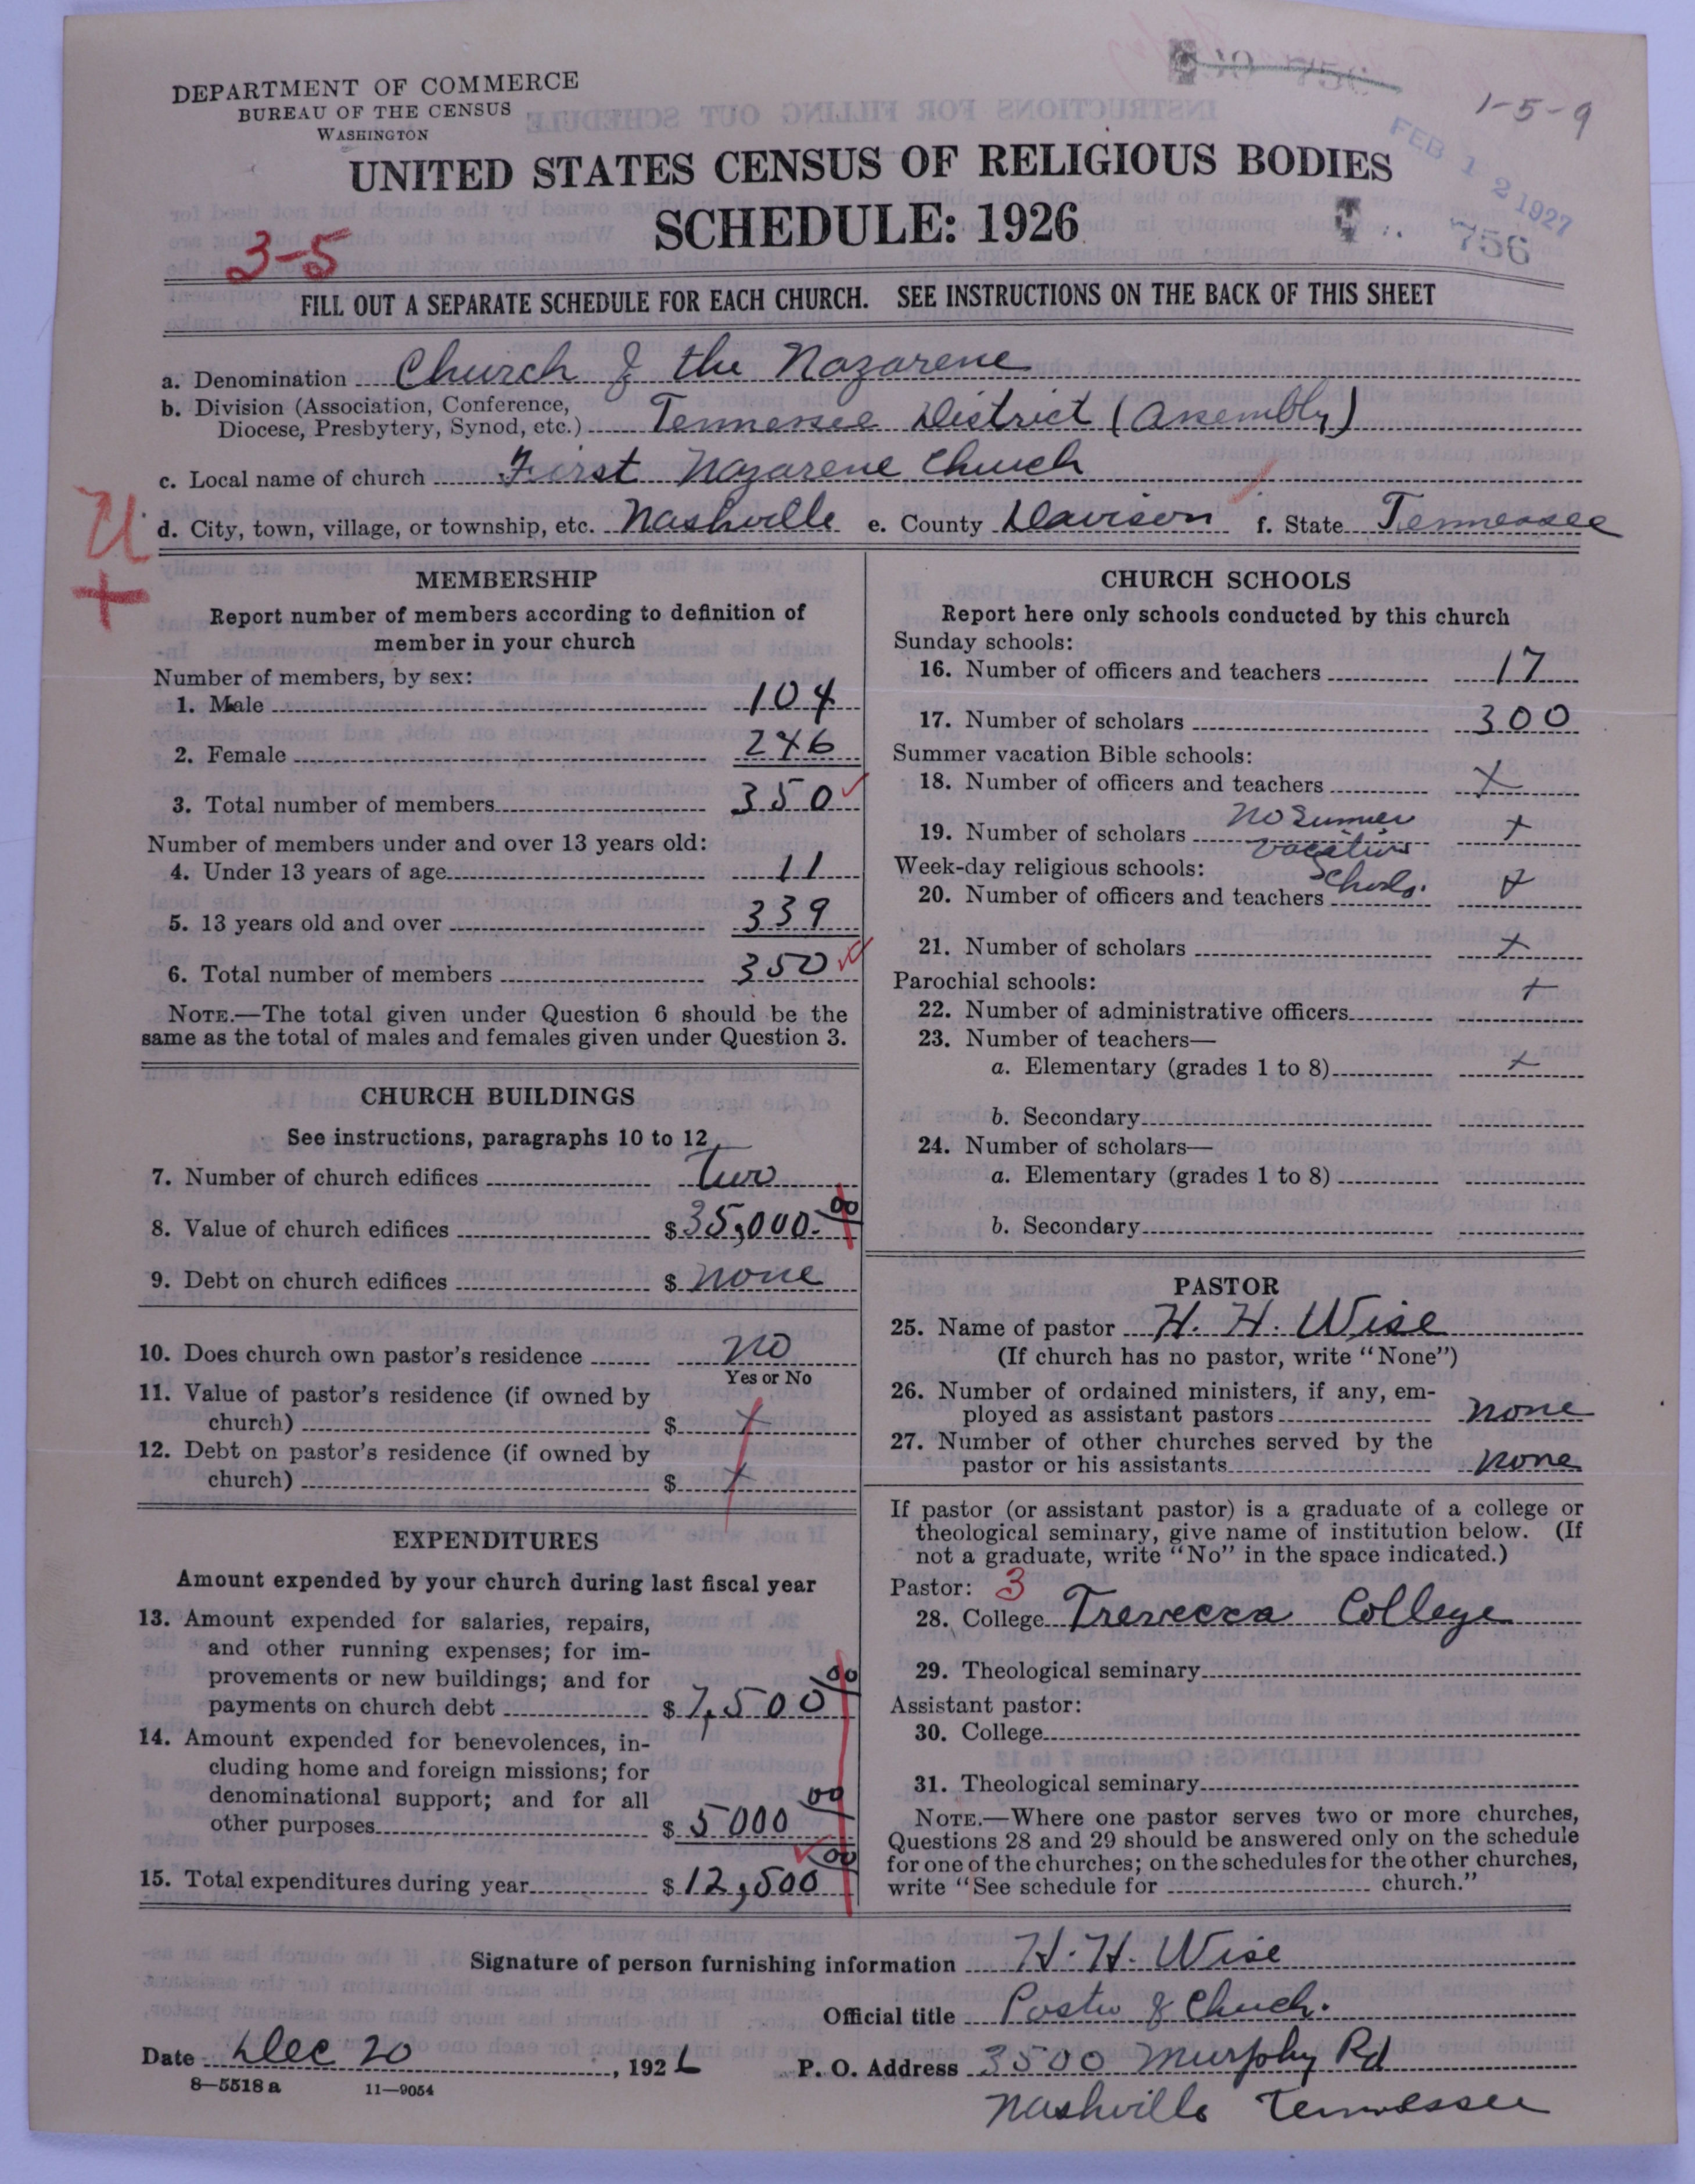 DEPARTMENT OF COMMERCE
BUREAU OF THE CENSUS
WASHINGTON
1-5-9
FEB 12 1927
756
UNITED STATES CENSUS OF RELIGIOUS BODIES
SCHEDULE: 1926
3-5
FILL OUT A SEPARATE SCHEDULE FOR EACH CHURCH. SEE INSTRUCTIONS ON THE BACK OF THIS SHEET
a. Denomination Church of the Nazarene
b. Division (Association, Conference,
Diocese, Presbytery, Synod, etc.) Tennessee District (Assembly)
c. Local name of church First Nazarene Church
U
d. City, town, village, or township, etc. Nashville e. County Davison f. State Tennessee
+
MEMBERSHIP
Report number of members according to definition of
member in your church
Number of members, by sex:
1. Male 104
2. Female 246
3. Total number of members 350
Number of members under and over 13 years old:
4. Under 13 years of age 11
5. 13 years old and over 339
6. Total number of members 350
NOTE.—The total given under Question 6 should be the
same as the total of males and females given under Question 3.
CHURCH BUILDINGS
See instructions, paragraphs 10 to 12
7. Number of church edifices two
8. Value of church edifices $ 35,000.00
9. Debt on church edifices $ none
10. Does church own pastor's residence no
Yes or No
11. Value of pastor's residence (if owned by
church) $ x
12. Debt on pastor's residence (if owned by
church) $ x
EXPENDITURES
Amount expended by your church during last fiscal year
13. Amount expended for salaries, repairs,
and other running expenses; for im-
provements or new buildings; and for
payments on church debt $ 7,500 00
14. Amount expended for benevolences, in-
cluding home and foreign missions; for
denominational support; and for all
other purposes $ 5000 00
15. Total expenditures during year $ 12,500 00
CHURCH SCHOOLS
Report here only schools conducted by this church
Sunday schools:
16. Number of officers and teachers 17
17. Number of scholars 300
Summer vacation Bible schools:
18. Number of officers and teachers x
19. Number of scholars no Summer x
vacation
Week-day religious schools:
Schools.
20. Number of officers and teachers x
21. Number of scholars x
Parochial schools:
22. Number of administrative officers x
23. Number of teachers—
a. Elementary (grades 1 to 8) x
b. Secondary
24. Number of scholars—
a. Elementary (grades 1 to 8)
b. Secondary
PASTOR
25. Name of pastor H. H. Wise
(If church has no pastor, write "None")
26. Number of ordained ministers, if any, em-
ployed as assistant pastors none
27. Number of other churches served by the
pastor or his assistants none
If pastor (or assistant pastor) is a graduate of a college or
theological seminary, give name of institution below. (If
not a graduate, write "No" in the space indicated.)
Pastor: 3
28. College Trevecca College
29. Theological seminary
Assistant pastor:
30. College
31. Theological seminary
NOTE.—Where one pastor serves two or more churches,
Questions 28 and 29 should be answered only on the schedule
for one of the churches; on the schedules for the other churches,
write "See schedule for church."
Signature of person furnishing information H. H. Wise
Official title Pastor of Church.
Date Dec 20, 1926 P. O. Address 3500 Murphy Rd
8—5518 a 11—9054
Nashville Tennessee